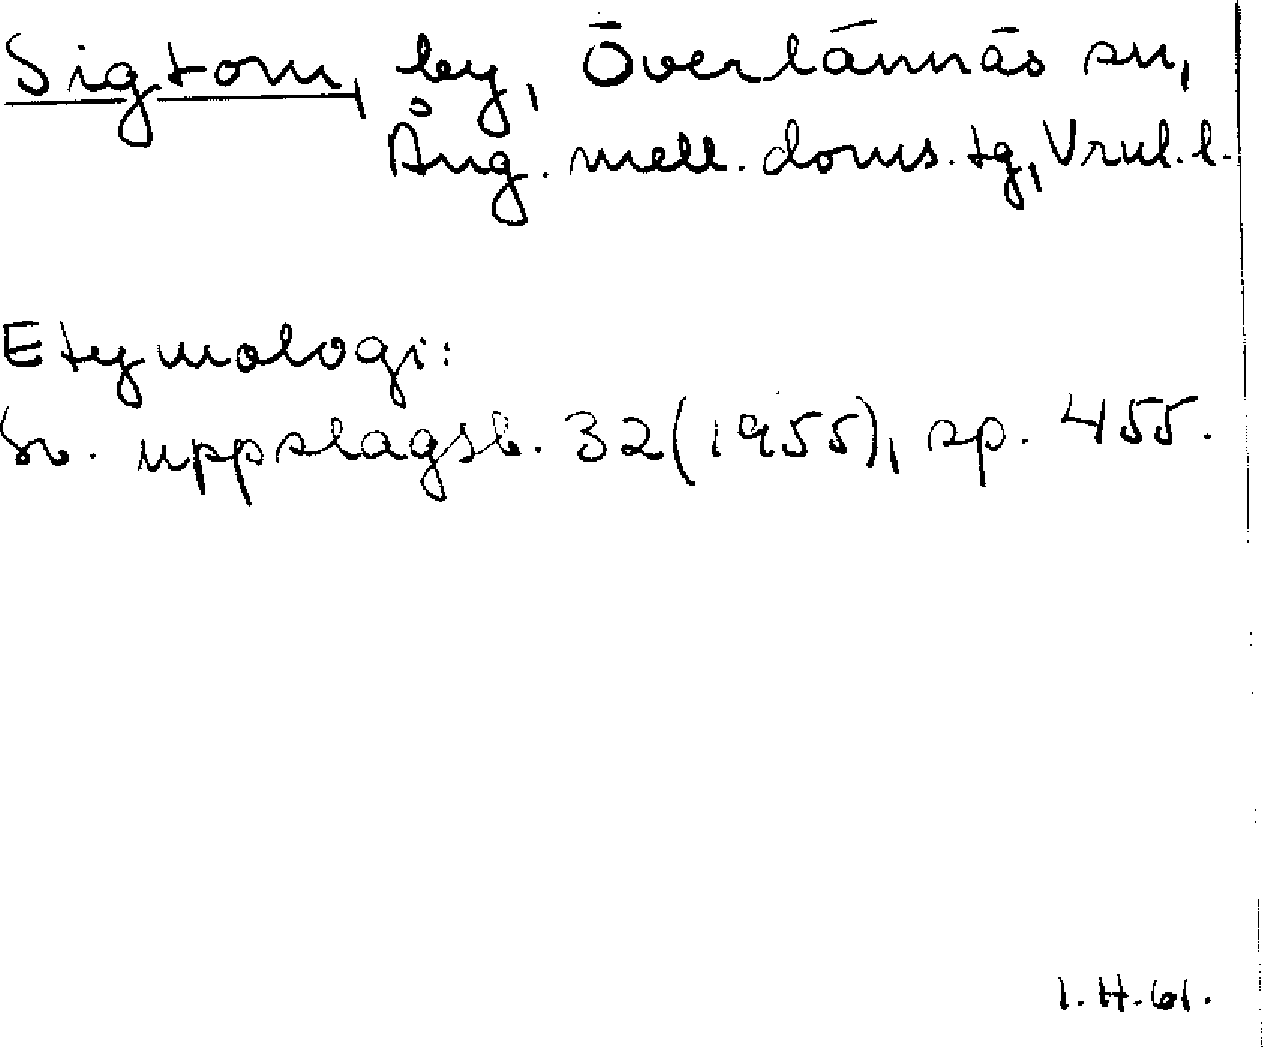 Sigtom, by, Överlännäs sn,
Ång. mell. doms. tg, Vrnl. l.
Etymologi:
Sv. uppslagsb. 32 (1955), sp. 455.
I.H.61.